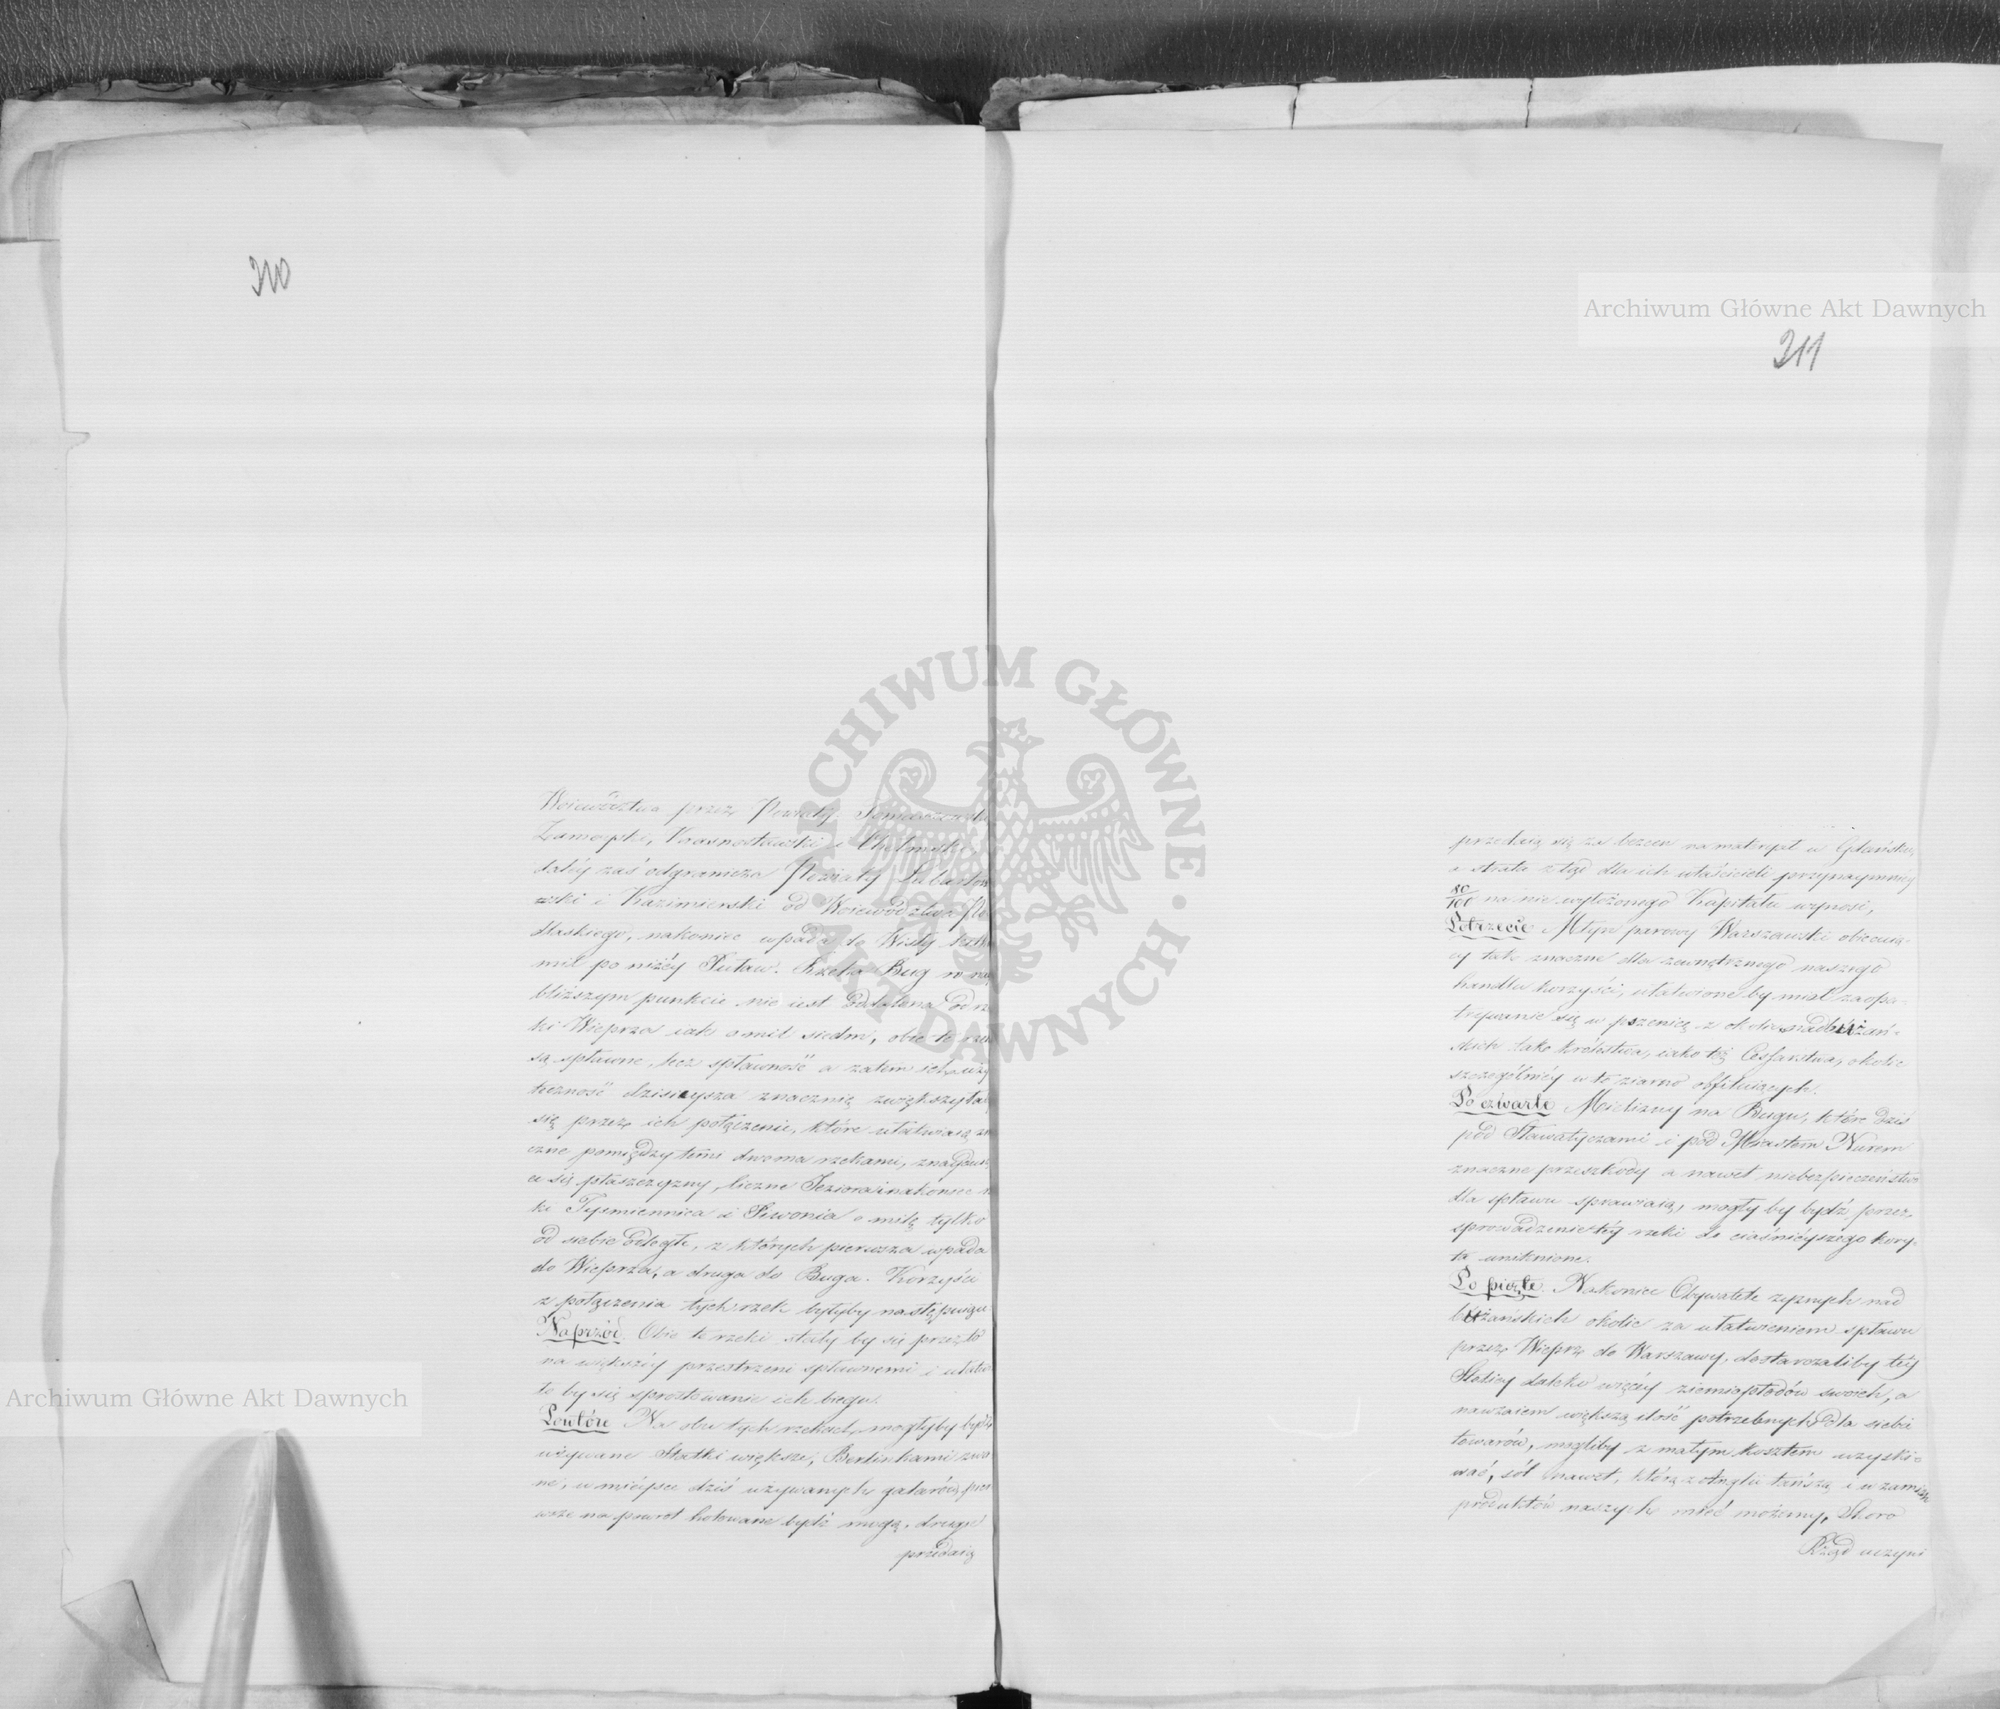 310
Woiewództwa przez Powiaty Tomaszowski
Zamoyski, Krasnostawski i Chełmski,
daléy zaś odgranicza Powiaty Lubartow
wski i Kazimierski od Woiewództwa Po
dlaskiego, nakoniec wpada do Wisły
mil poniżéy Puław. Rzeka Bug w nay
bliższym punkcie nie iest oddalona od rze
ki Wieprza iak o mil siedm, obie te rzeki
są spławne, lecz spławność a zatem ich uży
teczność dzisieysza znacznie zwiększyłaby
się przez ich połączenie, które ułatwiaią
czne pomiędzy temi dwoma rzekami, znayduią
ce się płaszczyzny, liczne Jeziora i nakoniec
ki Tyśmiennica i Piwonia o milę tylko
od siebie odległe, z których pierwsza wpada
do Wieprza, a druga do Buga. Korzyści
z połączenia tych rzek byłyby następuiące
Naprzód. Obie te rzeki stały by się przez to
na większéy przestrzeni spławnemi i ułatwi
ło by się sprostowanie ich biegu.
Powtóre Na obu tych rzekach, mogłyby bydź
używane Statki większe, Berlinkami zwa
ne, w mieysce dziś używanych galarów,
wsze na powrót holowane bydź mogą, drugie
przedaią
Archiwum Główne Akt Dawnych
ARCHIWUM GŁÓWNE AKT DAWNYCH
Archiwum Główne Akt Dawnych
311
przedaią się za bezcen na materyał w Gdańsku,
a strata ztąd dla ich właścicieli przynaymniéy
80/100 na nie wyłożonego Kapitału wynosi,
Potrzecie Młyn parowy Warszawski obiecuią-
cy tak znaczne dla zewnętrznego naszego
handlu korzyści, ułatwione by miał zaopa-
trywanie się w pszenicę z okolic nadbużań-
skich tak królestwa, iako też Cesarstwa, okolic
szczególniéy w to ziarno obfituiących.
Po czwarte Mielizny na Bugu, które dziś
pod Sławatyczami i pod Miastem Nurem
znaczne przeszkody a nawet niebezpieczeństwa
dla spławu sprawiaią, mogły by bydź przez
sprowadzenie téy rzeki do ciaśnieyszego kory-
ta uniknione.
Po piąte. Nakoniec Obywatele żyznych nad
bużańskich okolic za ułatwieniem spławu
przez Wieprz do Warszawy, dostarczaliby téy
Stolicy daleko więcéy ziemiopłodów swoich, a
nawzaiem większą ilość potrzebnych dla siebie
towarów, mogliby z małym kosztem uzyski-
wać, sól nawet, którą z Anglii tańszą i w zamian
produktów naszych mieć możemy, Skoro
Rząd uczyni